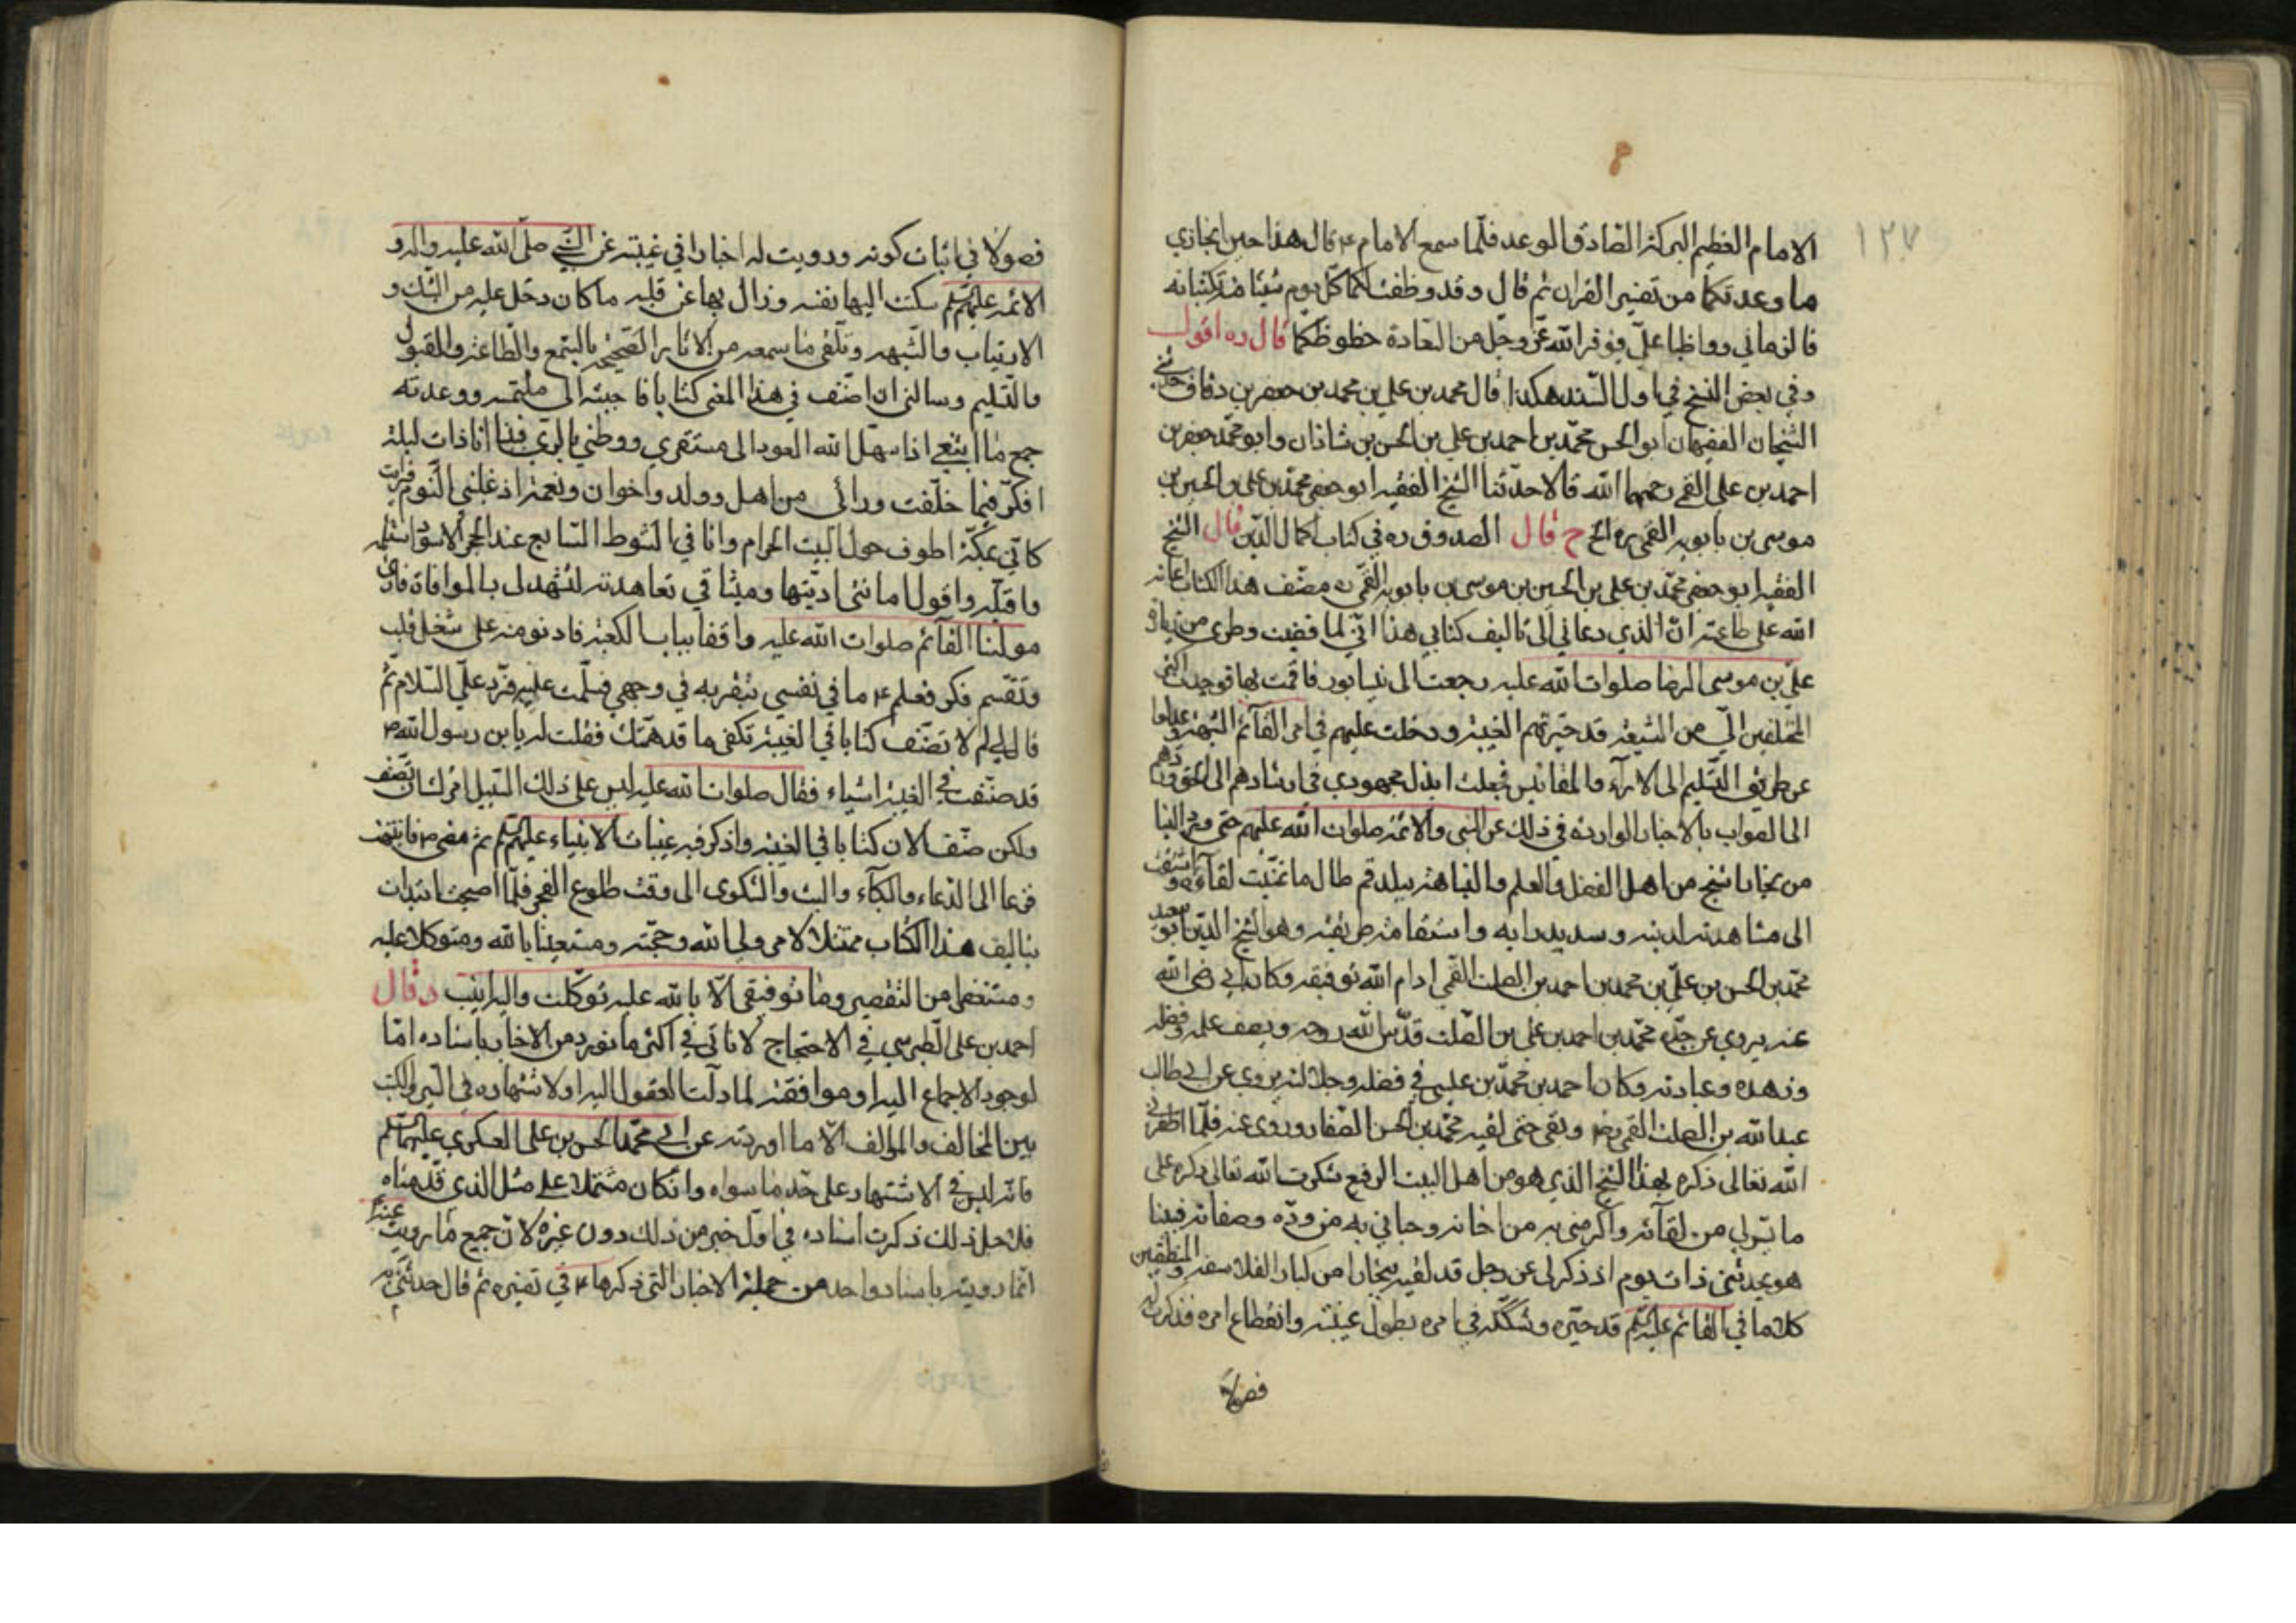 ١٢٧
الامام العظيم البركة الصادق الوعد فلما سمع الامام ع قال هذا حين انجازي
ما وعدتكما من تفسير القرآن ثم قال و قد وظفت لكما كل يوم شيئا منه تكتبانه
فالزماني وواظبا علي يوفر الله عز وجل من السعادة حظوظكما قال ره اقول
وفي بعض النسخ في اول السند هكذا قال محمد بن علي بن محمد بن جعفر بن دقاق حدثني
الشيخان الفقيهان ابو الحسن محمد بن احمد بن علي بن الحسن بن شاذان وابو محمد جعفر بن
احمد بن علي القمي رحمهما الله قالا حدثنا الشيخ الفقيه ابو جعفر محمد بن علي بن الحسين بن
موسى بن بابويه القمي ره الخ ح قال الصدوق ره في كتاب اكمال الدين قال الشيخ
الفقيه ابو جعفر محمد بن علي بن الحسين بن موسى بن بابويه القمي ره مصنف هذا الكتاب اعانه
الله على طاعته ان الذي دعاني الى تاليف كتابي هذا اني لما قضيت وطري من زيارة
علي بن موسى الرضا صلوات الله عليه رجعت الى نيسابور فاقمت بها فوجدت اكثر
المختلفين الي من الشيعة قد حيرتهم الغيبة ودخلت عليهم في امر القائم الشبهة وعدلوا
عن طريق التسليم الى الآراء والمقائيس فجعلت ابذل مجهودي في ارشادهم الى الحق وردهم
الى الصواب بالاخبار الواردة في ذلك عن النبي والائمة صلوات الله عليهم حتى ورد الينا
من بخارا شيخ من اهل الفضل والعلم والنباهة ببلد قم طال ما تمنيت لقاءه و اشتقت
الى مشاهدته لدينه وسديد رايه واستقامة طريقته وهو الشيخ الدين ابو سعيد
محمد بن الحسن بن علي بن محمد بن احمد بن الصلت القمي ادام الله توفيقه وكان ابي رضي الله
عنه يروي عن جده محمد بن احمد بن علي بن الصلت قدس الله روحه ويصف علمه وفضله
وزهده وعبادته وكان احمد بن محمد بن عيسى في فضله وجلالته يروي عن ابي طالب
عبد الله بن الصلت القمي رض وبقي حتى لقيه محمد بن الحسن الصفار وروى عنه فلما اظفرني
الله تعالى ذكره بهذا الشيخ الذي هو من اهل البيت الرفيع شكرت الله تعالى ذكره على
ما يسر لي من لقائه واكرمني به من اخائه وحباني به من وده وصفائه فبينا
هو يحدثني ذات يوم اذ ذكر لي عن رجل قد لقيه ببخارا من كبار الفلاسفة والمنطقيين
كلاما في القائم عليه السلم قد حيره وشككه في امره بطول غيبته وانقطاع امره فذكرت له
فصولا
فصولا في اثبات كونه ورويت له اخبارا في غيبته عن النبي صلى الله عليه واله و
الائمة عليهم السلم سكنت اليها نفسه وزال بها عن قلبه ما كان دخل عليه من الشك و
الارتياب والشبهة وتلقى ما سمعه من الاثار الصحيحة بالسمع والطاعة والقبول
والتسليم وسالني ان اصنف في هذا المعنى كتابا فاجبته الى ملتمسه ووعدته
جمع ما ابتغي اذا سهل الله العود الى مستقري ووطني بالري فبينا انا ذات ليلة
افكر فيما خلفت ورائي من اهل وولد واخوان ونعمة اذ غلبني النوم فرايت
كاني بمكة اطوف حول البيت الحرام وانا في الشوط السابع عند الحجر الاسود استلمه
واقبله واقول امانتي اديتها وميثاقي تعاهدته لتشهد لي بالموافاة فارى
مولينا القائم صلوات الله عليه واقفا بباب الكعبة فادنو منه على شغل قلب
وتقسم فكر فعلم ع ما في نفسي بتفرسه في وجهي فسلمت عليه فرد علي السلام ثم
قال لي لم لا تصنف كتابا في الغيبة تكفى ما قد همك فقلت له يا بن رسول الله ص
قد صنفت في الغيبة اشياء فقال صلوات الله عليه ليس على ذلك السبيل امرك ان تصنف
ولكن صنف الان كتابا في الغيبة واذكر فيه غيبات الانبياء عليهم السلم ثم مضى ع فانتبهت
فزعا الى الدعاء والبكاء والبث والشكوى الى وقت طلوع الفجر فلما اصبحت ابتدات
بتاليف هذا الكتاب ممتثلا لامر ولي الله وحجته ومستعينا بالله ومتوكلا عليه
ومستغفرا من التقصير وما توفيقي الا بالله عليه توكلت واليه انيب وقال
احمد بن علي الطبرسي في الاحتجاج لا ناتي في اكثر ما نورده من الاخبار باسناده اما
لوجود الاجماع اليه او موافقته لما دلت العقول اليه او لاشتهاره في السير والكتب
بين المخالف والمؤالف الا ما اوردته عن ابي محمد الحسن بن علي العسكري عليهما السلم
فانه ليس في الاشتهار على حد ما سواه وان كان مشتملا على مثل الذي قدمناه
فلاجل ذلك ذكرت اسناده في اول خبر من ذلك دون غيره لان جميع ما رويت عنه
انما رويته باسناد واحد من جملة الاخبار التي ذكرها ع في تفسيره ثم قال حدثني